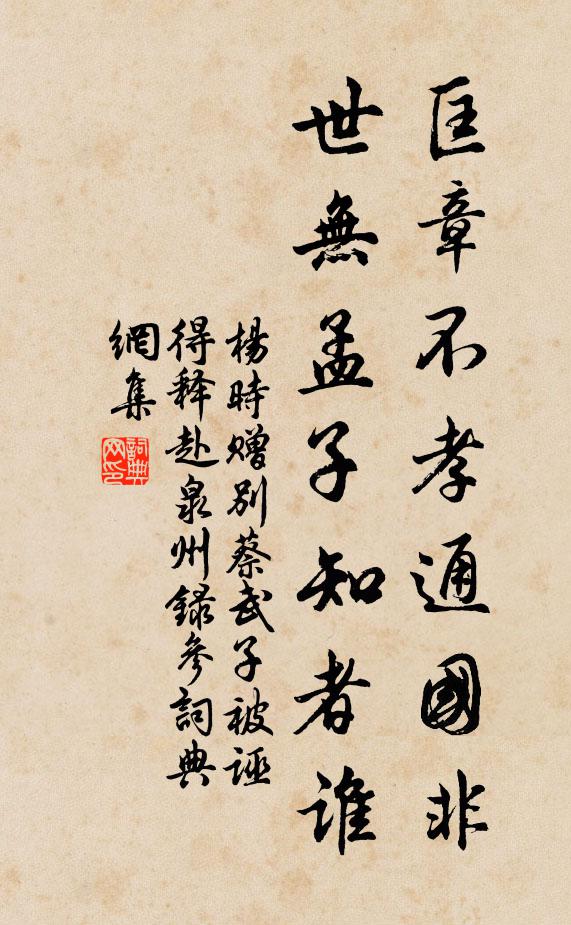 匡章不孝通國非
世無孟子知者誰
楊時贈別蔡武子被誣
得释赴泉州録參詞典
網集
詞典
网印